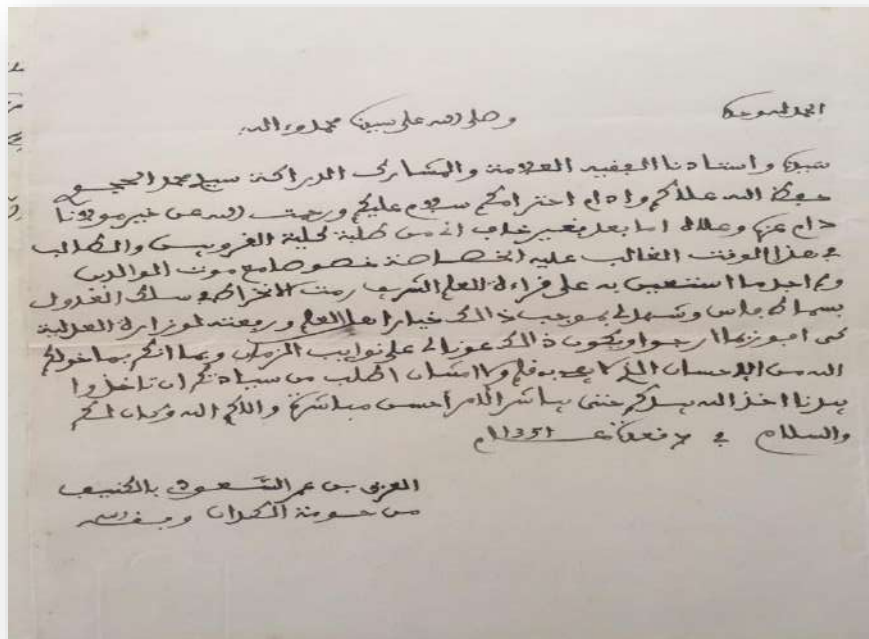 الحمد لله وحده وصلى الله على سيدنا محمد وءاله
سيدنا واستاذنا الفقيه العلامة والمشارك الدراكة سيدي محمد الحجوي
حفظ الله علاكم وادام احترامكم سلام عليكم ورحمت الله عن خير مولانا
دام عزه وعلاه اما بعد فغير خاف اني من طلبة كلية القرويين والطالب
في هذا الوقت الغالب عليه الخصاصة خصوصا مع موت الوالدين
ولم اجد ما استعين به على قراءة العلم الشريف رمت الانخراط في سلك العدول
بسماط فاس وشهد لي بموجب ذالك خيار اهل العلم ورفعته لوزارة العدلية
كي افوز بما ارجو ويكون ذالك عونا لي على نوايب الزمان وبما انكم بما خولكم
الله من الاحسان الذي لا يعد به قلم ولا لسان اطلب من سيادتكم ان تاخذوا
بيدنا اخذ الله بيدكم حتى يباشر الامر احسن مباشرة والله لكم
والسلام في قعدة عام 1351
العربي بن عمر السعودي بالكنيف
من حومة الكدان وفقه الله